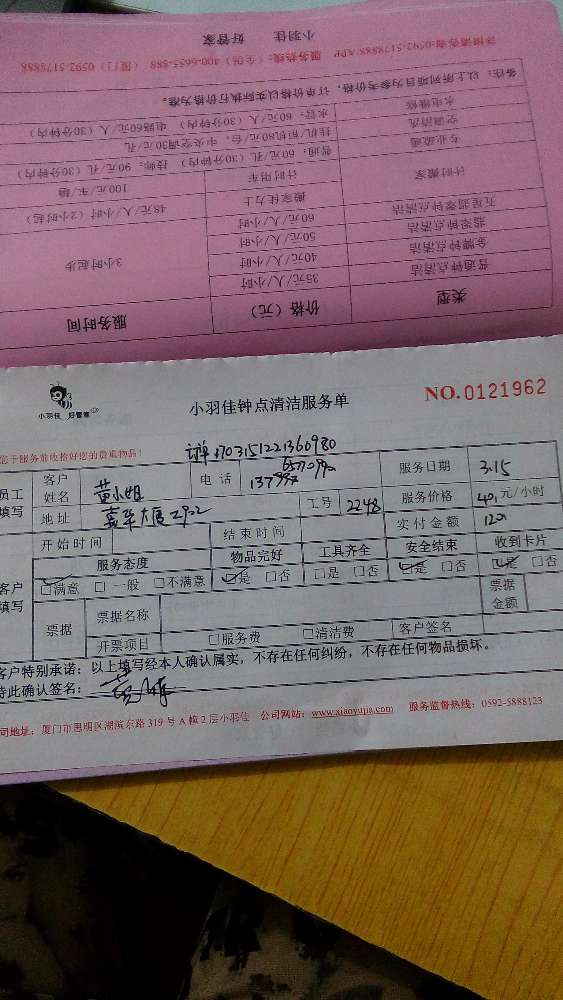 小羽佳 好管家
详情请咨询:0592-5178888/APP 服务热线：(全国) 400-6655-888 (厦门) 0592-5178888
类型 价格（元） 服务时间
普通钟点清洁 35元/人/小时 3小时起步
金牌钟点清洁 40元/人/小时
翡翠钟点清洁 50元/人/小时
五星翡翠钟点清洁 60元/人/小时
计时搬家 搬家佳力士 48元/人/小时（2小时起）
计时用车 100元/车/趟
专业疏通 普通：60元/孔（30分钟内） 技师：90元/孔（30分钟内）
空调清洗 挂机/柜机80元/台，中央空调30元/孔
水电维修 水管：60元/人/（30分钟内） 电路60元/人/（30分钟内）
备注：以上所列项目为参考价格，订单价格以实际执行价格为准。
小羽佳 好管家
小羽佳钟点清洁服务单
NO.0121962
您于服务前收拾好您的贵重物品！
员工填写 客户姓名 黄小姐 电话 服务日期 3.15
地址 嘉华大厦 工号 2248 服务价格 40 元/小时
开始时间 结束时间 实付金额 120
客户填写 服务态度 物品完好 工具齐全 安全结束 收到卡片
□满意 □一般 □不满意 □是 □否 □是 □否 □是 □否 □是 □否
票据 票据名称 票据金额
开票项目 □服务费 □清洁费 客户签名
客户特别承诺：以上填写经本人确认属实，不存在任何纠纷，不存在任何物品损坏。
特此确认签名：
司地址：厦门市思明区湖滨东路319号A幢2层小羽佳 公司网站：www.xiaoyujia.com 服务监督热线：0592-5888123